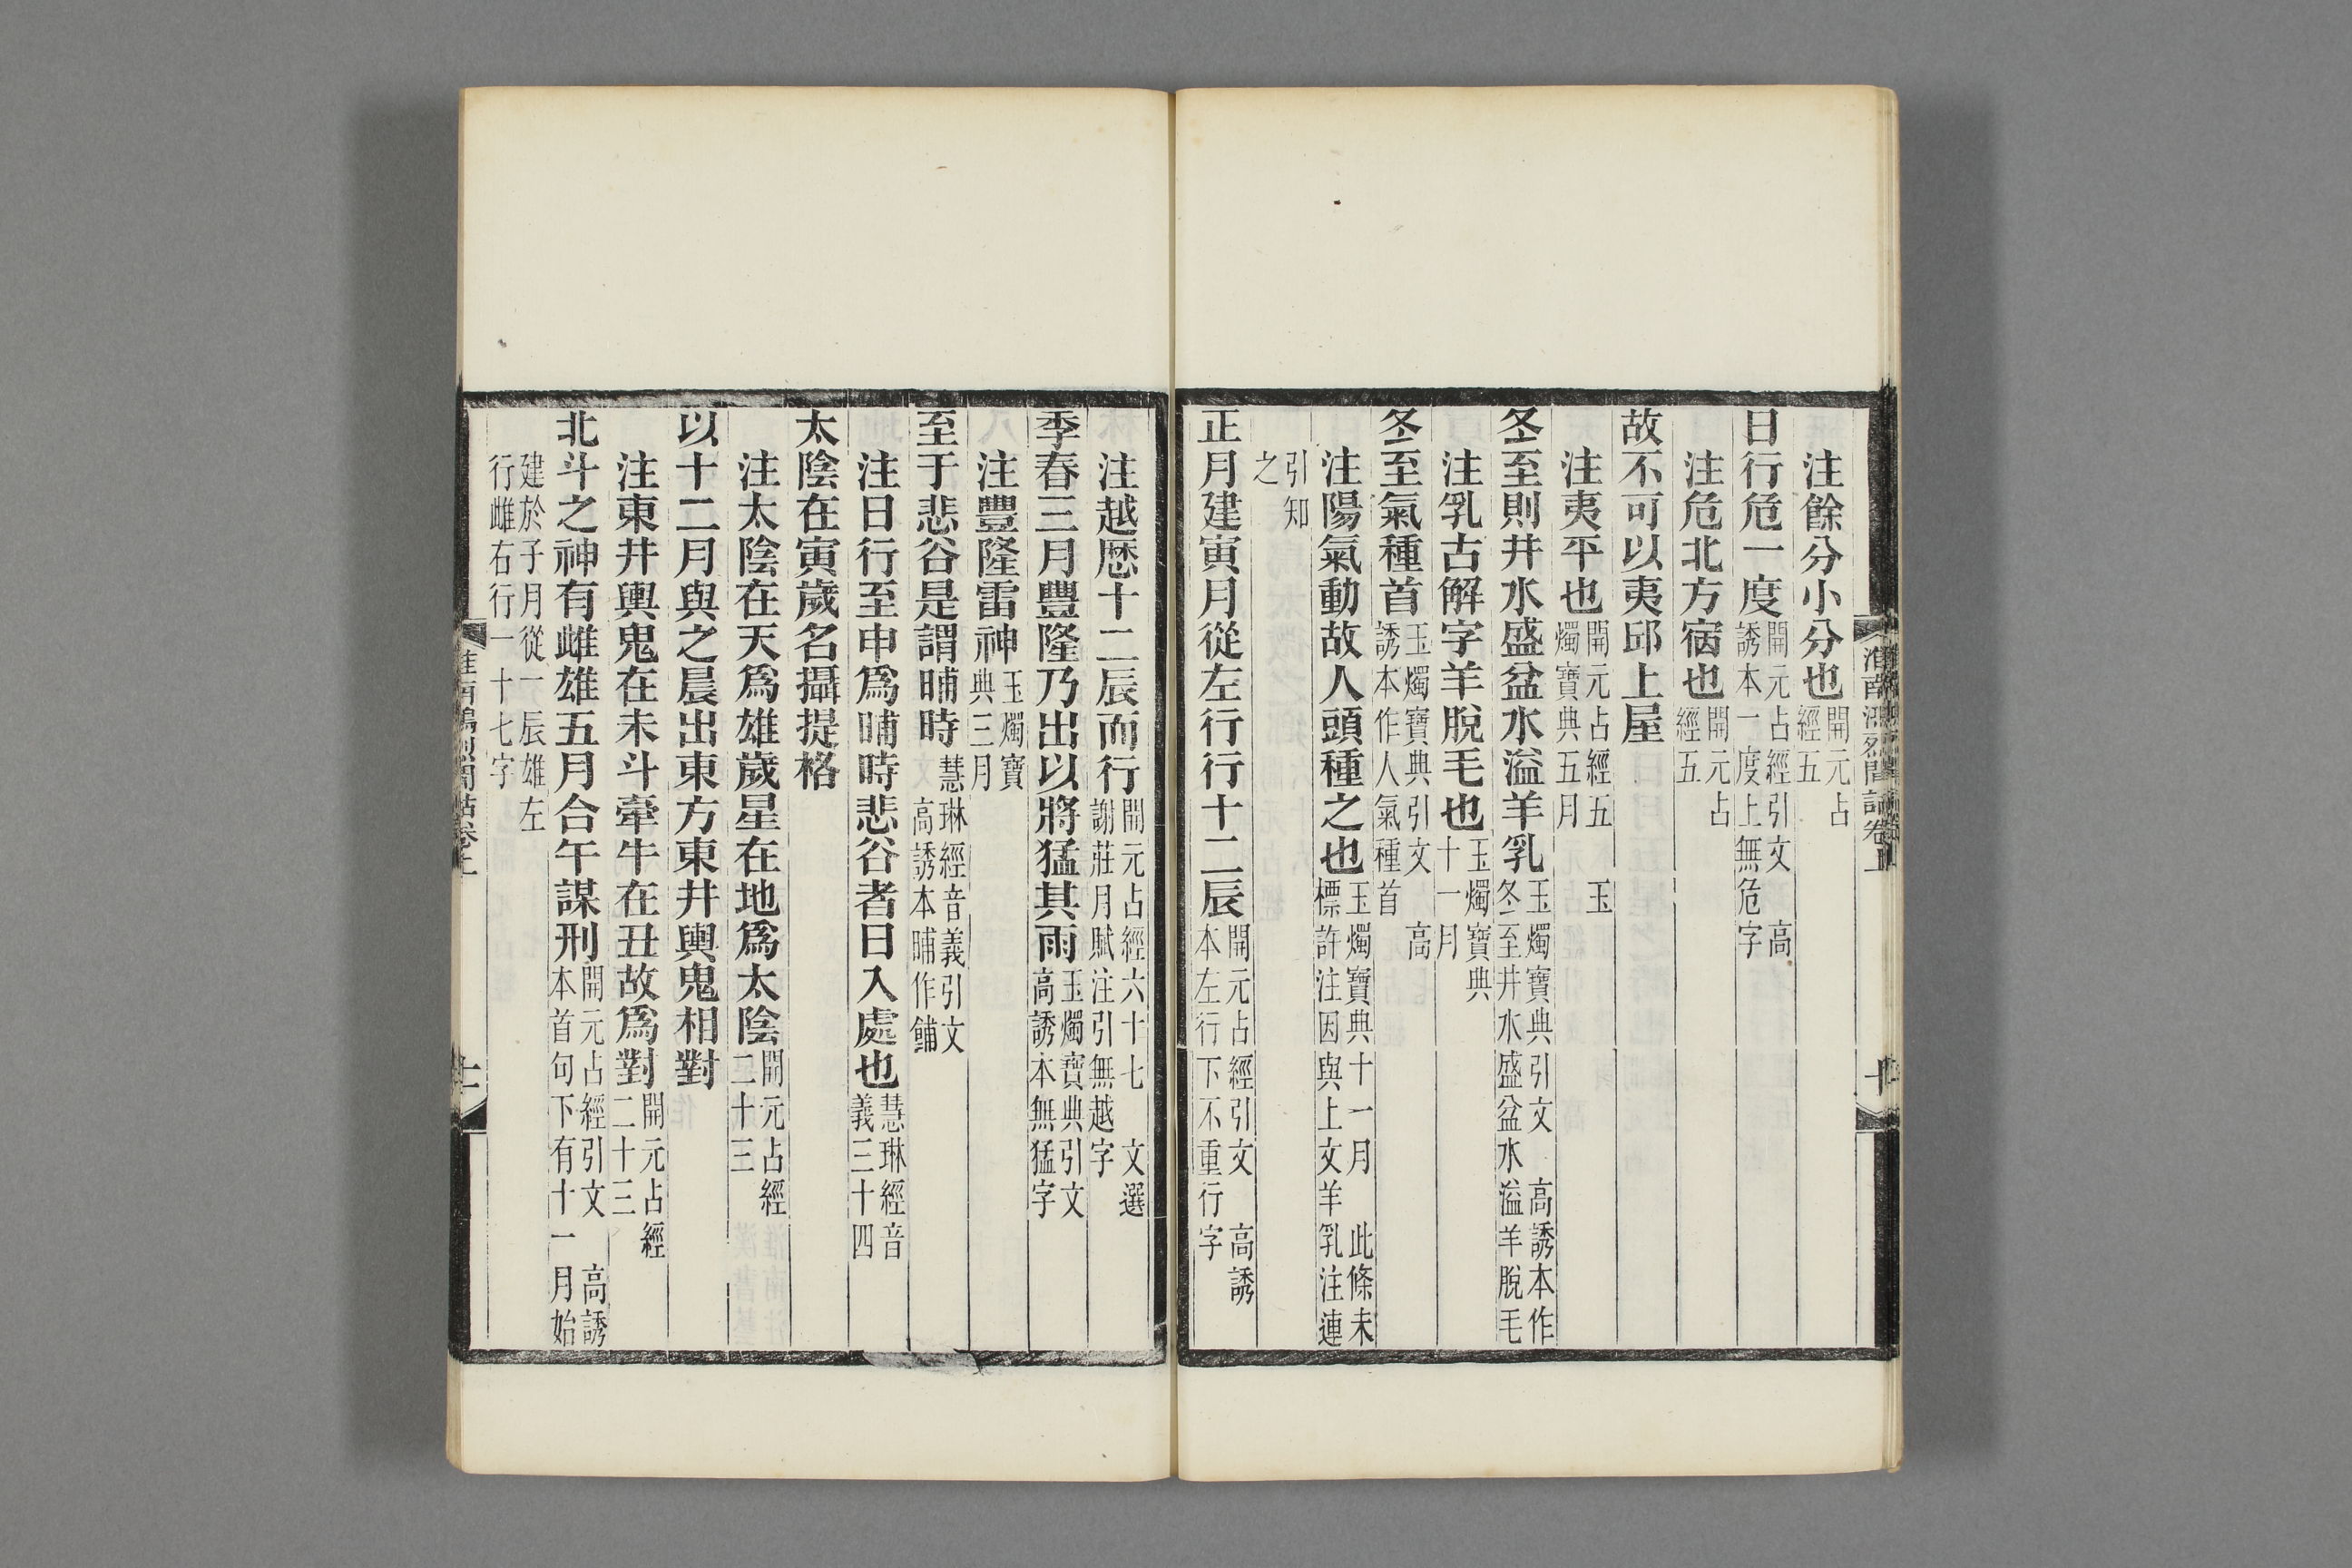 注餘分小分也開元占經五
日行危一度開元占經引文　高誘本一度上無危字
注危北方宿也開元占經五
故不可以夷邱上屋
注夷平也開元占經五　玉燭寶典五月
冬至則井水盛盆水溢羊乳玉燭寶典引文　高誘本作冬至井水盛盆水溢羊脫毛
注乳古解字羊脫毛也玉燭寶典十一月
冬至氣種首玉燭寶典引文　高誘本作人氣種首
注陽氣動故人頭種之也玉燭寶典十一月　此條未標許注因與上文羊乳注連
引知之
正月建寅月從左行行十二辰開元占經引文　高誘本左行下不重行字
淮南鴻烈閒詁卷上
十
注越厯十二辰而行開元占經六十七　文選謝莊月賦注引無越字
季春三月豐隆乃出以將猛其雨玉燭寶典引文高誘本無猛字
注豐隆雷神玉燭寶典三月
至于悲谷是謂晡時慧琳經音義引文高誘本晡作餔
注日行至申爲晡時悲谷者日入處也慧琳經音義三十四
太陰在寅歲名攝提格
注太陰在天爲雄歲星在地爲太陰開元占經二十三
以十二月與之晨出東方東井輿鬼相對
注東井輿鬼在未斗牽牛在丑故爲對開元占經二十三
北斗之神有雌雄五月合午謀刑開元占經引文　高誘本首句下有十一月始
建於子月從一辰雄左行雌右行一十七字
淮南鴻烈閒詁卷上
十一